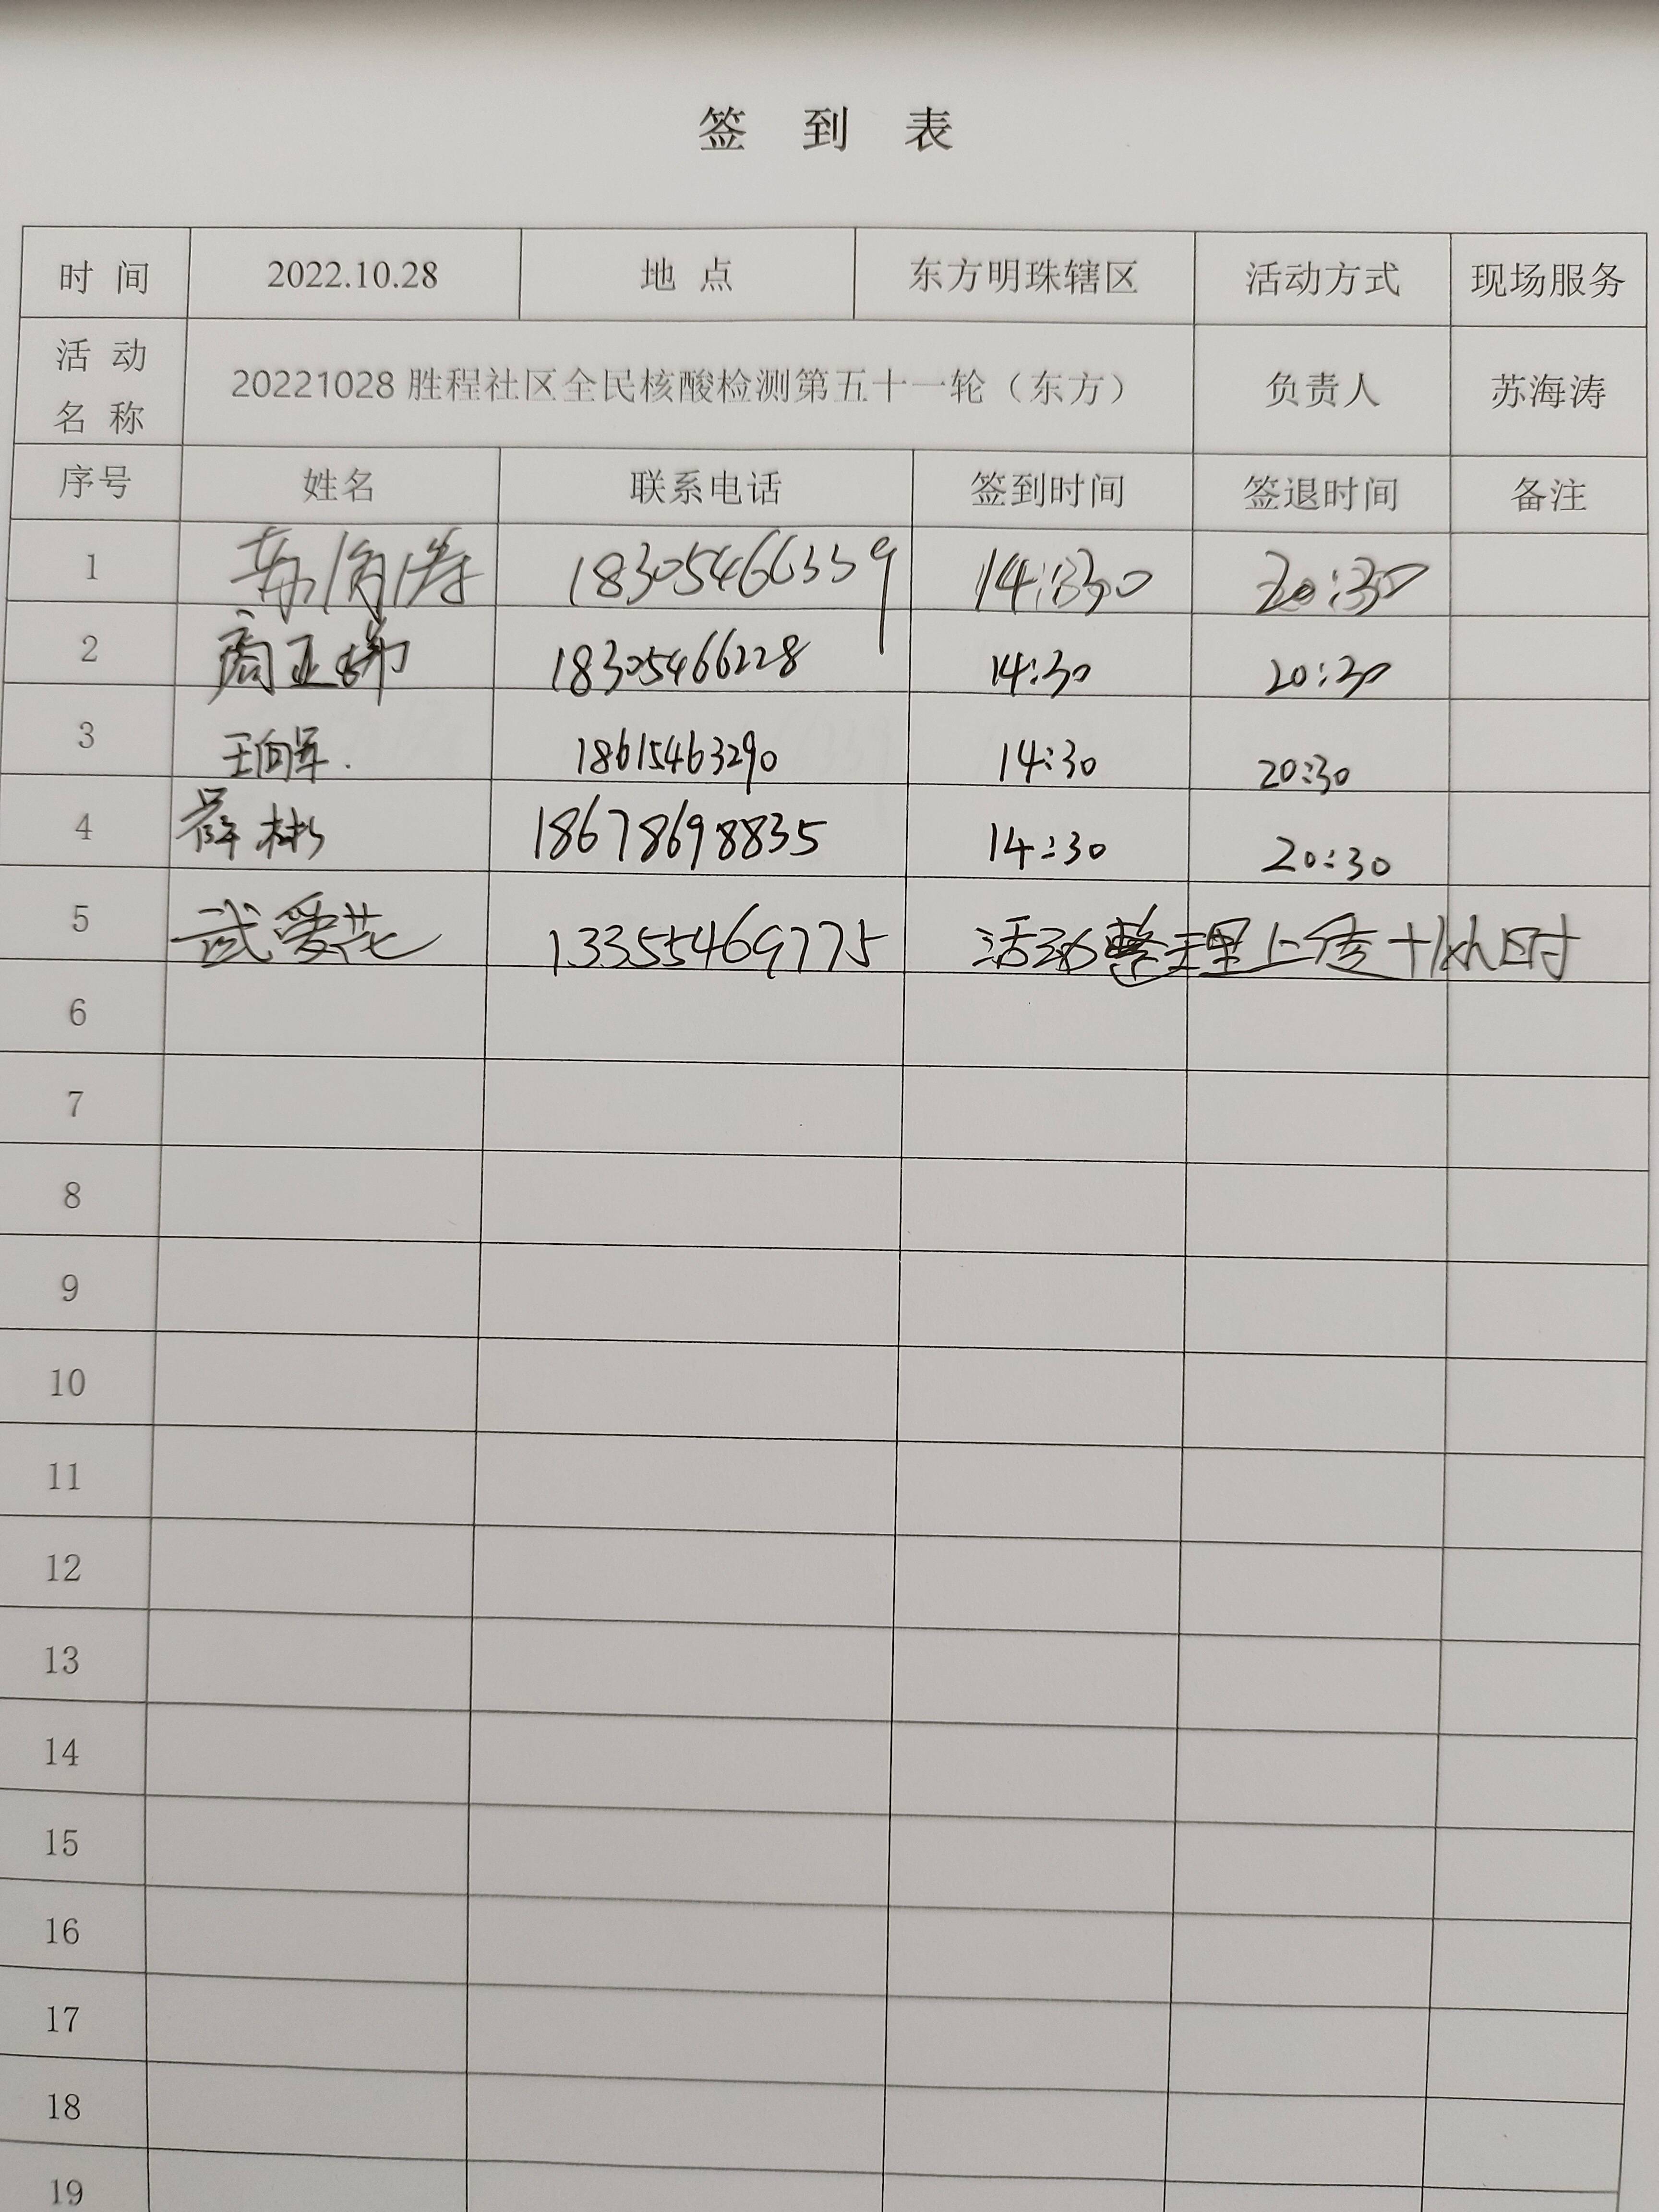 签 到 表
时 间 2022.10.28 地 点 东方明珠辖区 活动方式 现场服务
活 动 名 称 20221028胜程社区全民核酸检测第五十一轮（东方） 负责人 苏海涛
序号 姓名 联系电话 签到时间 签退时间 备注
1 苏海涛 18305466339 14:30 20:30
2 商亚娣 18305466228 14:30 20:30
3 王向军 18615463290 14:30 20:30
4 薛彬 18678698835 14:30 20:30
5 武爱花 13355469775 活动整理上传 小时
6
7
8
9
10
11
12
13
14
15
16
17
18
19